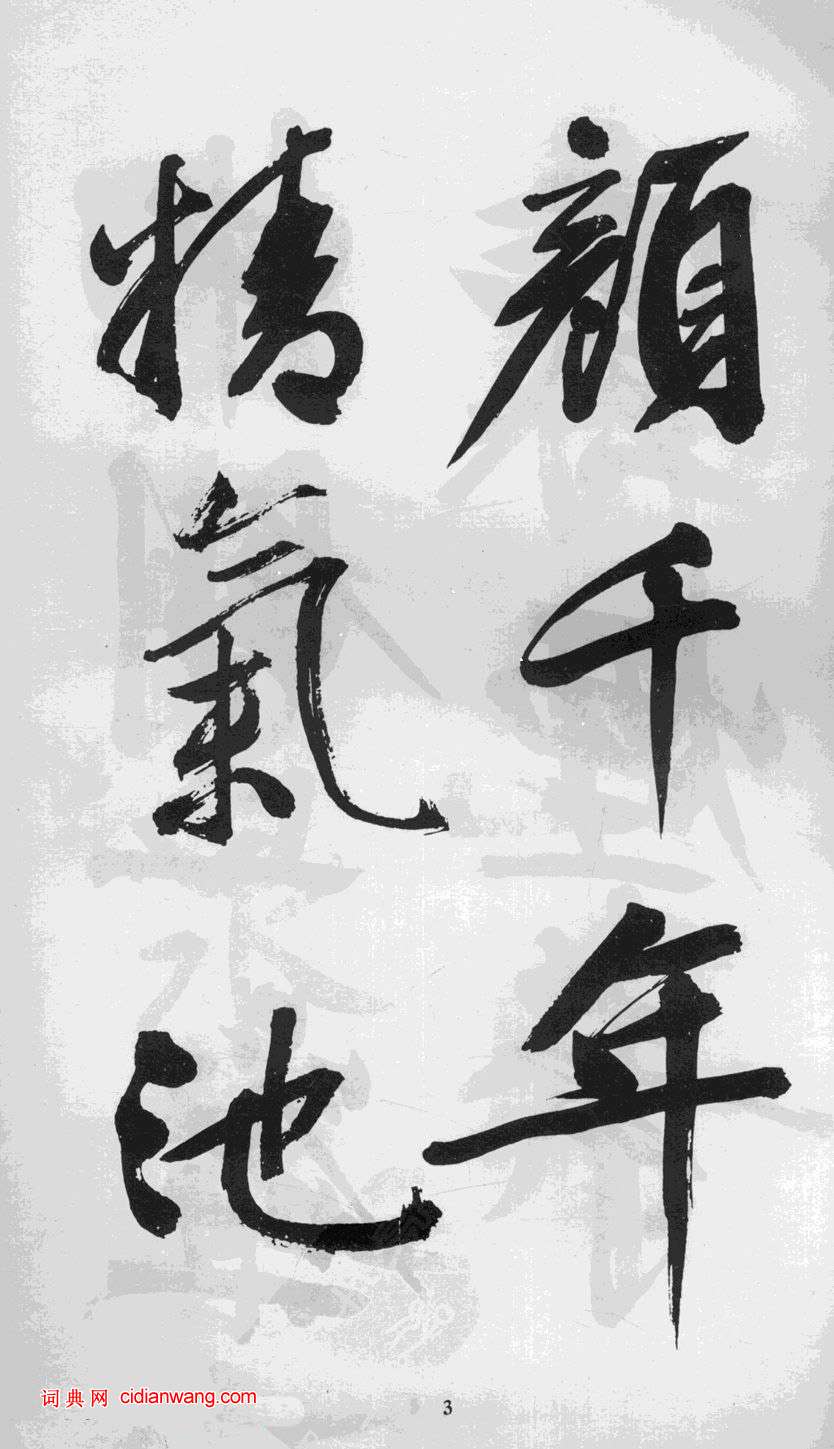 顔千年
精氣池
词典网 cidianwang.com
3